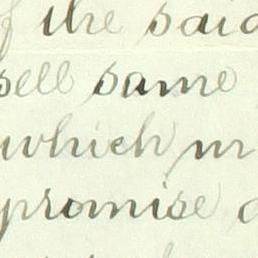 the said
sell same
which
promise